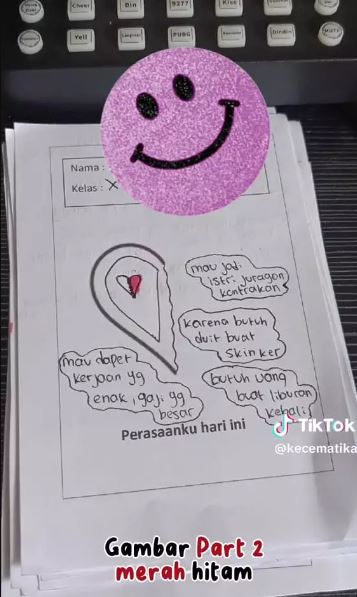 Cheer
Din
9277
Kiss
Yell
PUBG
Dindin
Nama :
Kelas : X
mau jadi
istri juragan
kontrakan
karena butuh
duit buat
skin ker
mau dapet
kerjaan yg
enak, gaji yg
besar
butuh uang
buat liburan
kebali
Perasaanku hari ini
TikTok
@kecematika
Gambar Part 2
merah hitam